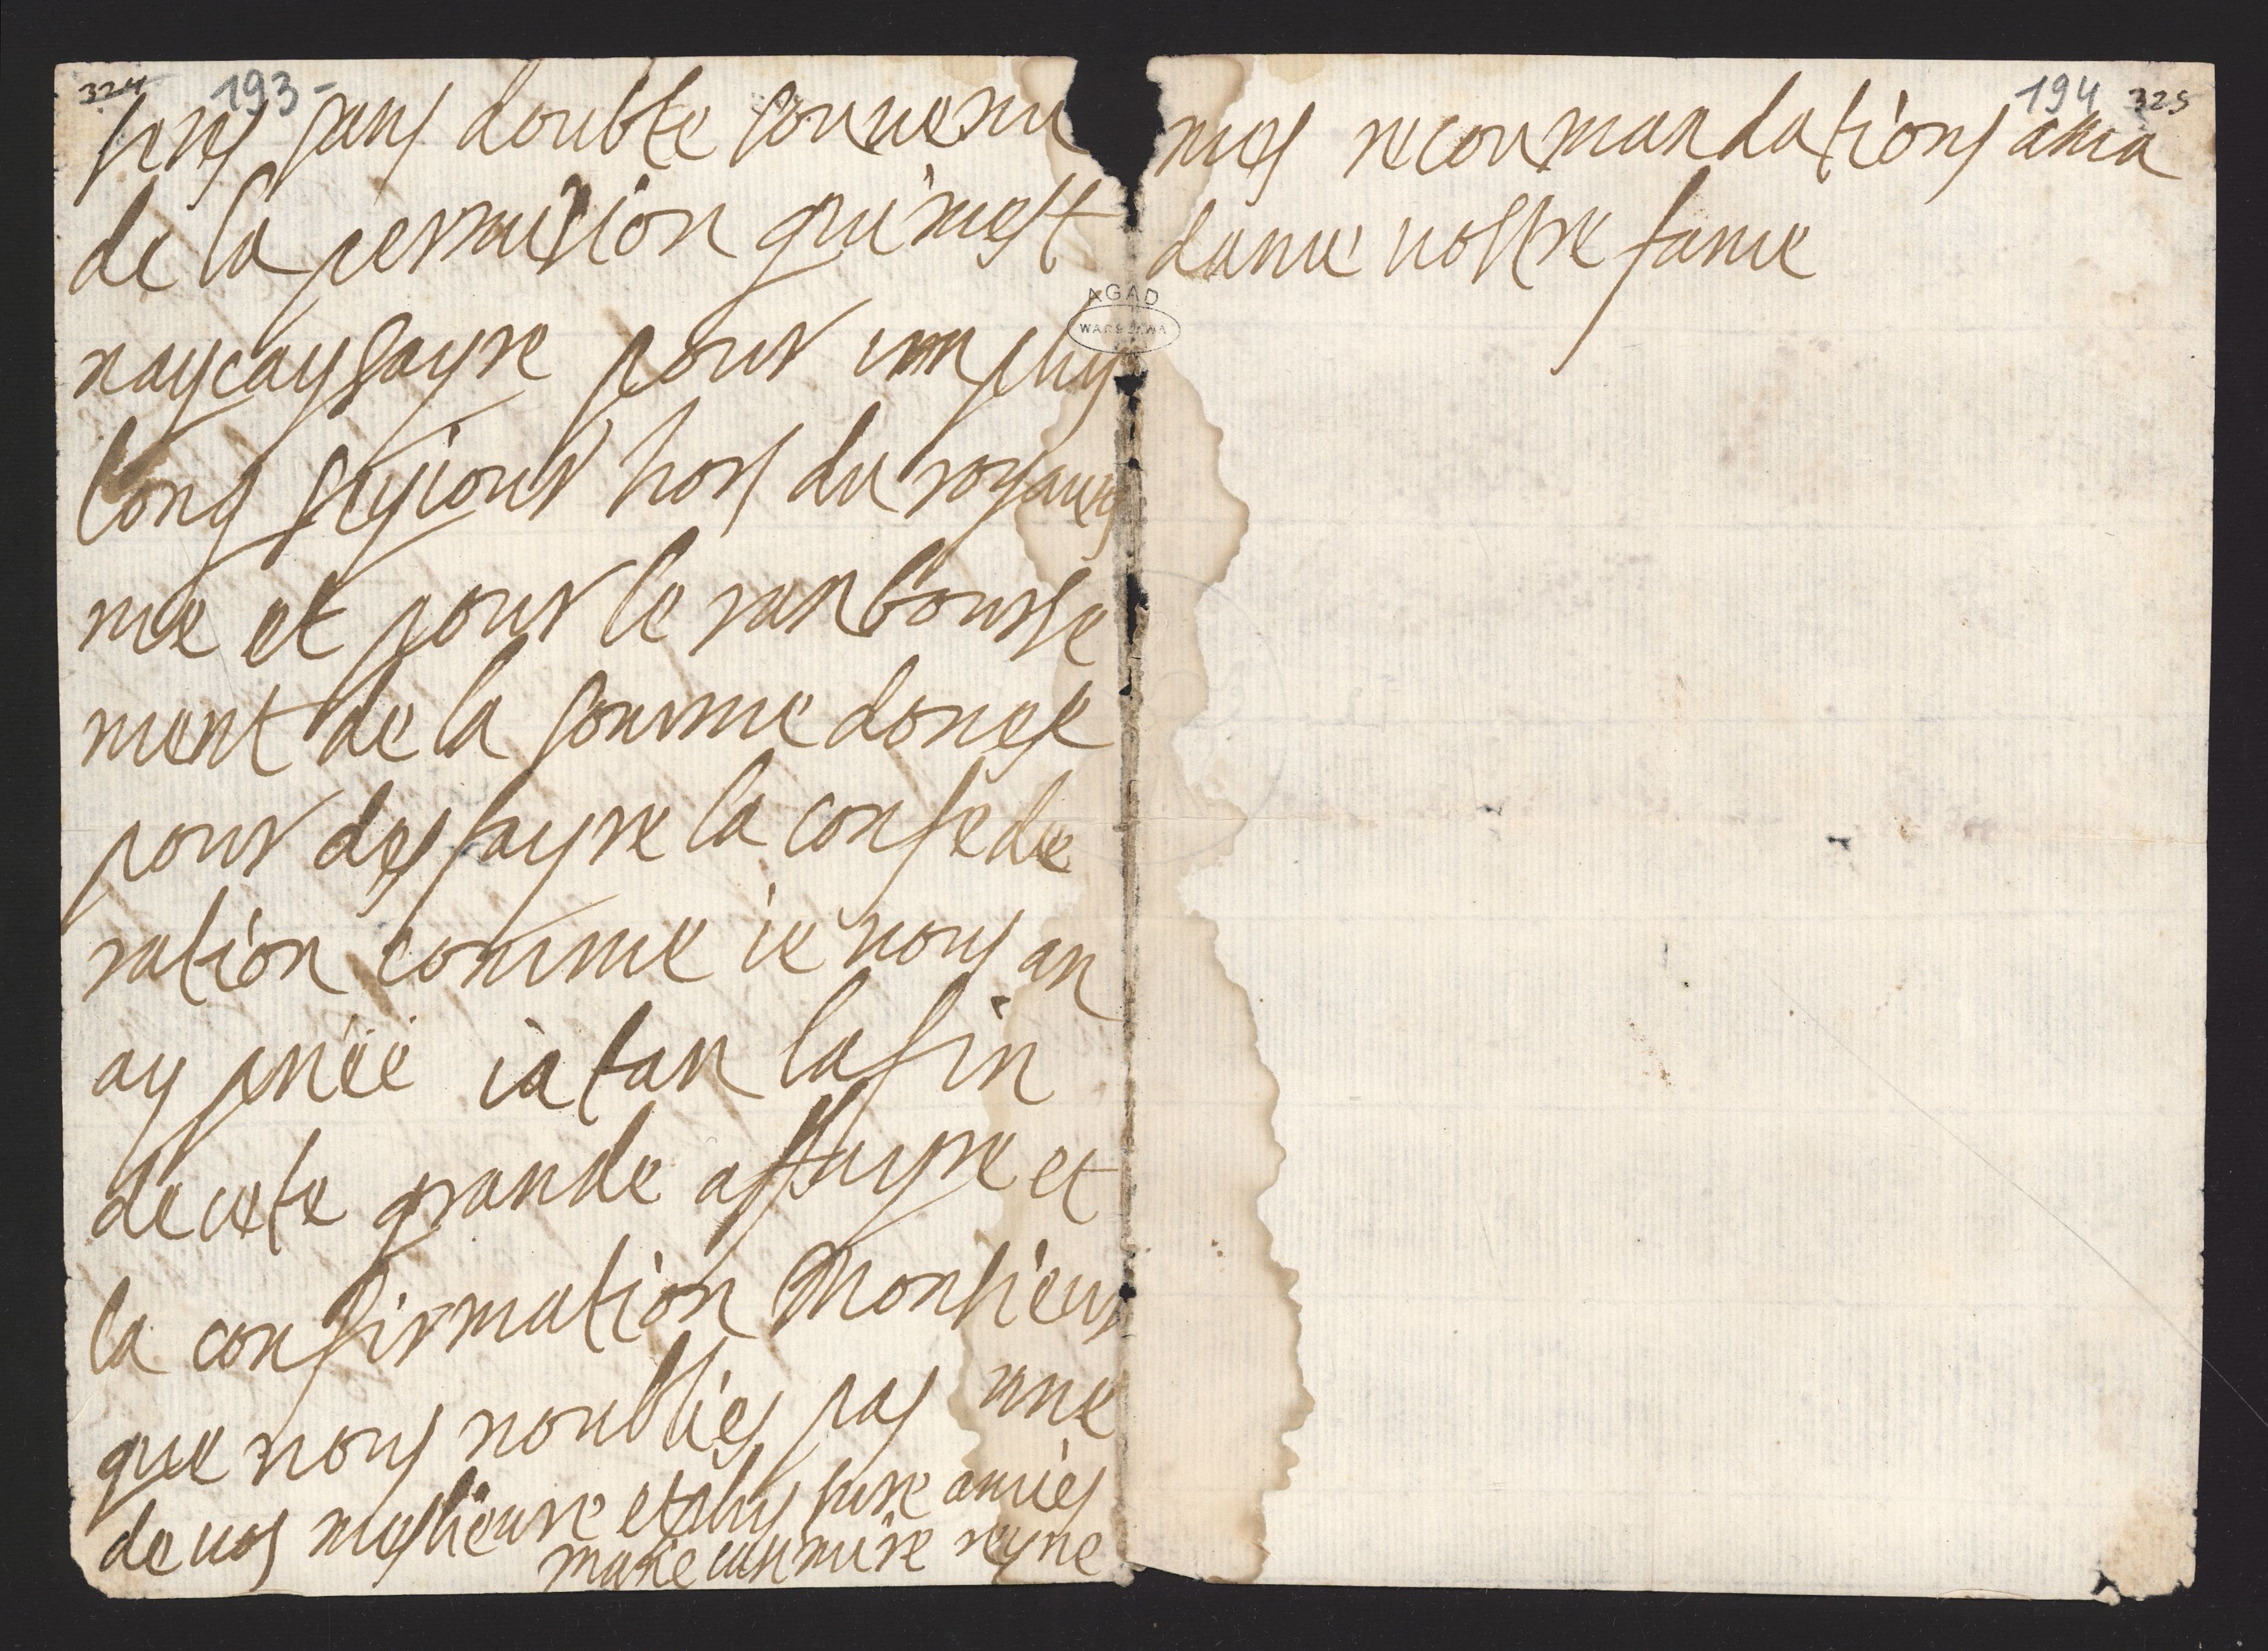 324 193-
serez sans doubte souuenu
de la permission qui mest
naycaysayre pour um plus
long seyiour hors du royaum
me et pour le ranbourse
ment de la somme donee
pour desfayre la confede
ration comme ie vous an
ay priéé iatan la fin
de cete grande affayre et
la confirmation Monsieur
que vous noublies pas une
de vos mesïieure et plus sure amies
marie casimire reyne
194 325
mes recoumandations ama
dame vostre fame
AGAD
WARSZAWA